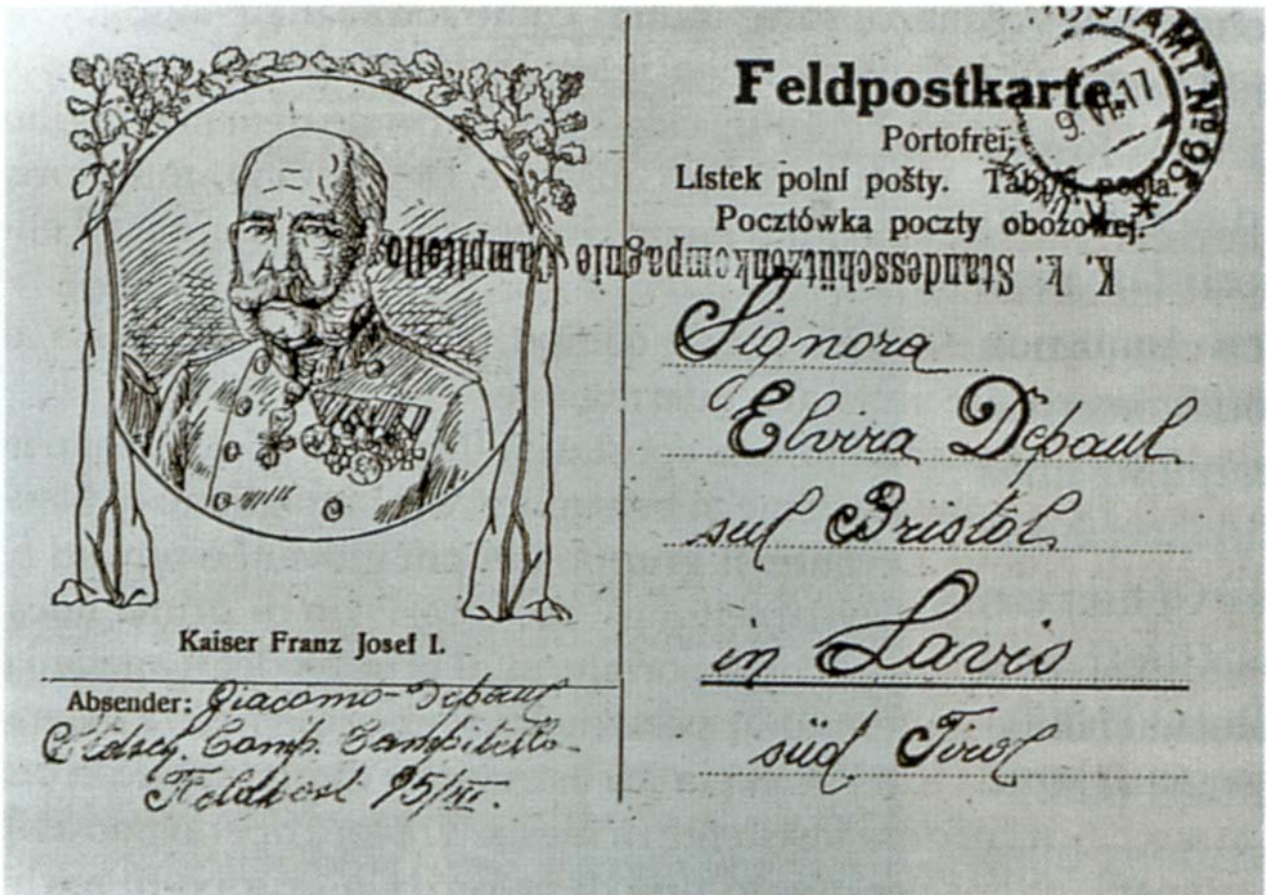 Kaiser Franz Josef I.
Absender: Giacomo Depaul
Stdsch. Comp. Campitello
Feldpost 95/III.
Feldpostkarte.
Portofrei.
Lístek polní pošty. Tábori posta.
Pocztówka poczty obozowej.
K. k. Standesschützenkompagnie Campitello
Signora
Elvira Depaul
sul Bristol
in Lavis
süd Tirol
AMT Nº 95
9. VI. 17